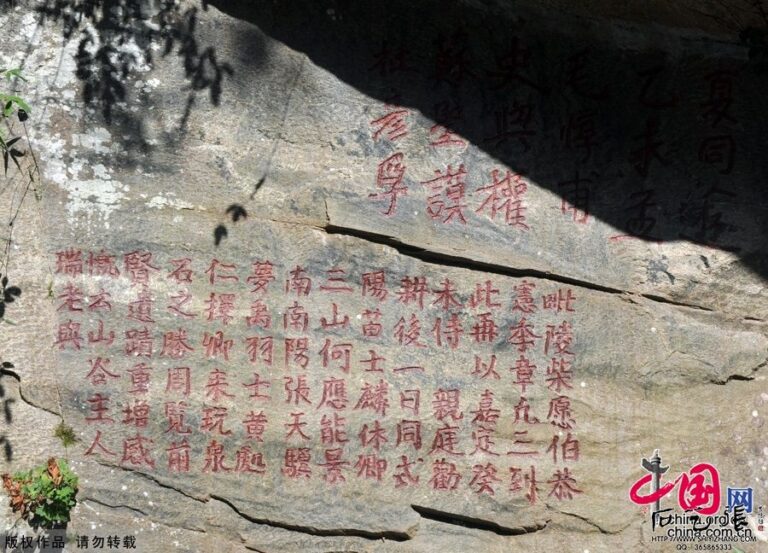 夏同途
乙未孟
毛惇甫
史與權
蘇墅謨
杜彥孚
毗陵柴愿伯恭
憲奉章凡三到
此再以嘉定癸
未侍 親庭勸
耕後一日同弋
陽苗士麟休卿
三山何應能景
南南陽張天驥
夢禹羽士黃処
仁擇卿来玩泉
石之勝周覽前
賢遺蹟重增感
慨云山谷主人
瑞老與
中国网
china.org.cn
china.com.cn
HTTP://WWW.SHIYIZHANG.COM
QQ:365865333
版权作品 请勿转载